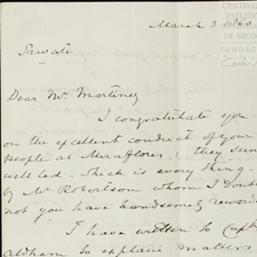 CENTRO
ESTUDIO
DE MÉXICO
FUNDAC
Carlos
March 3. 1860
Private
Dear Mr. Martinez
I congratulate you
on the excellent conduct of your
people at Miraflores. they seem
well led - which is every thing -
by Mr Robertson whom I doubt
not you have handsomely reward
I have written to Capt
Aldham to explain matters